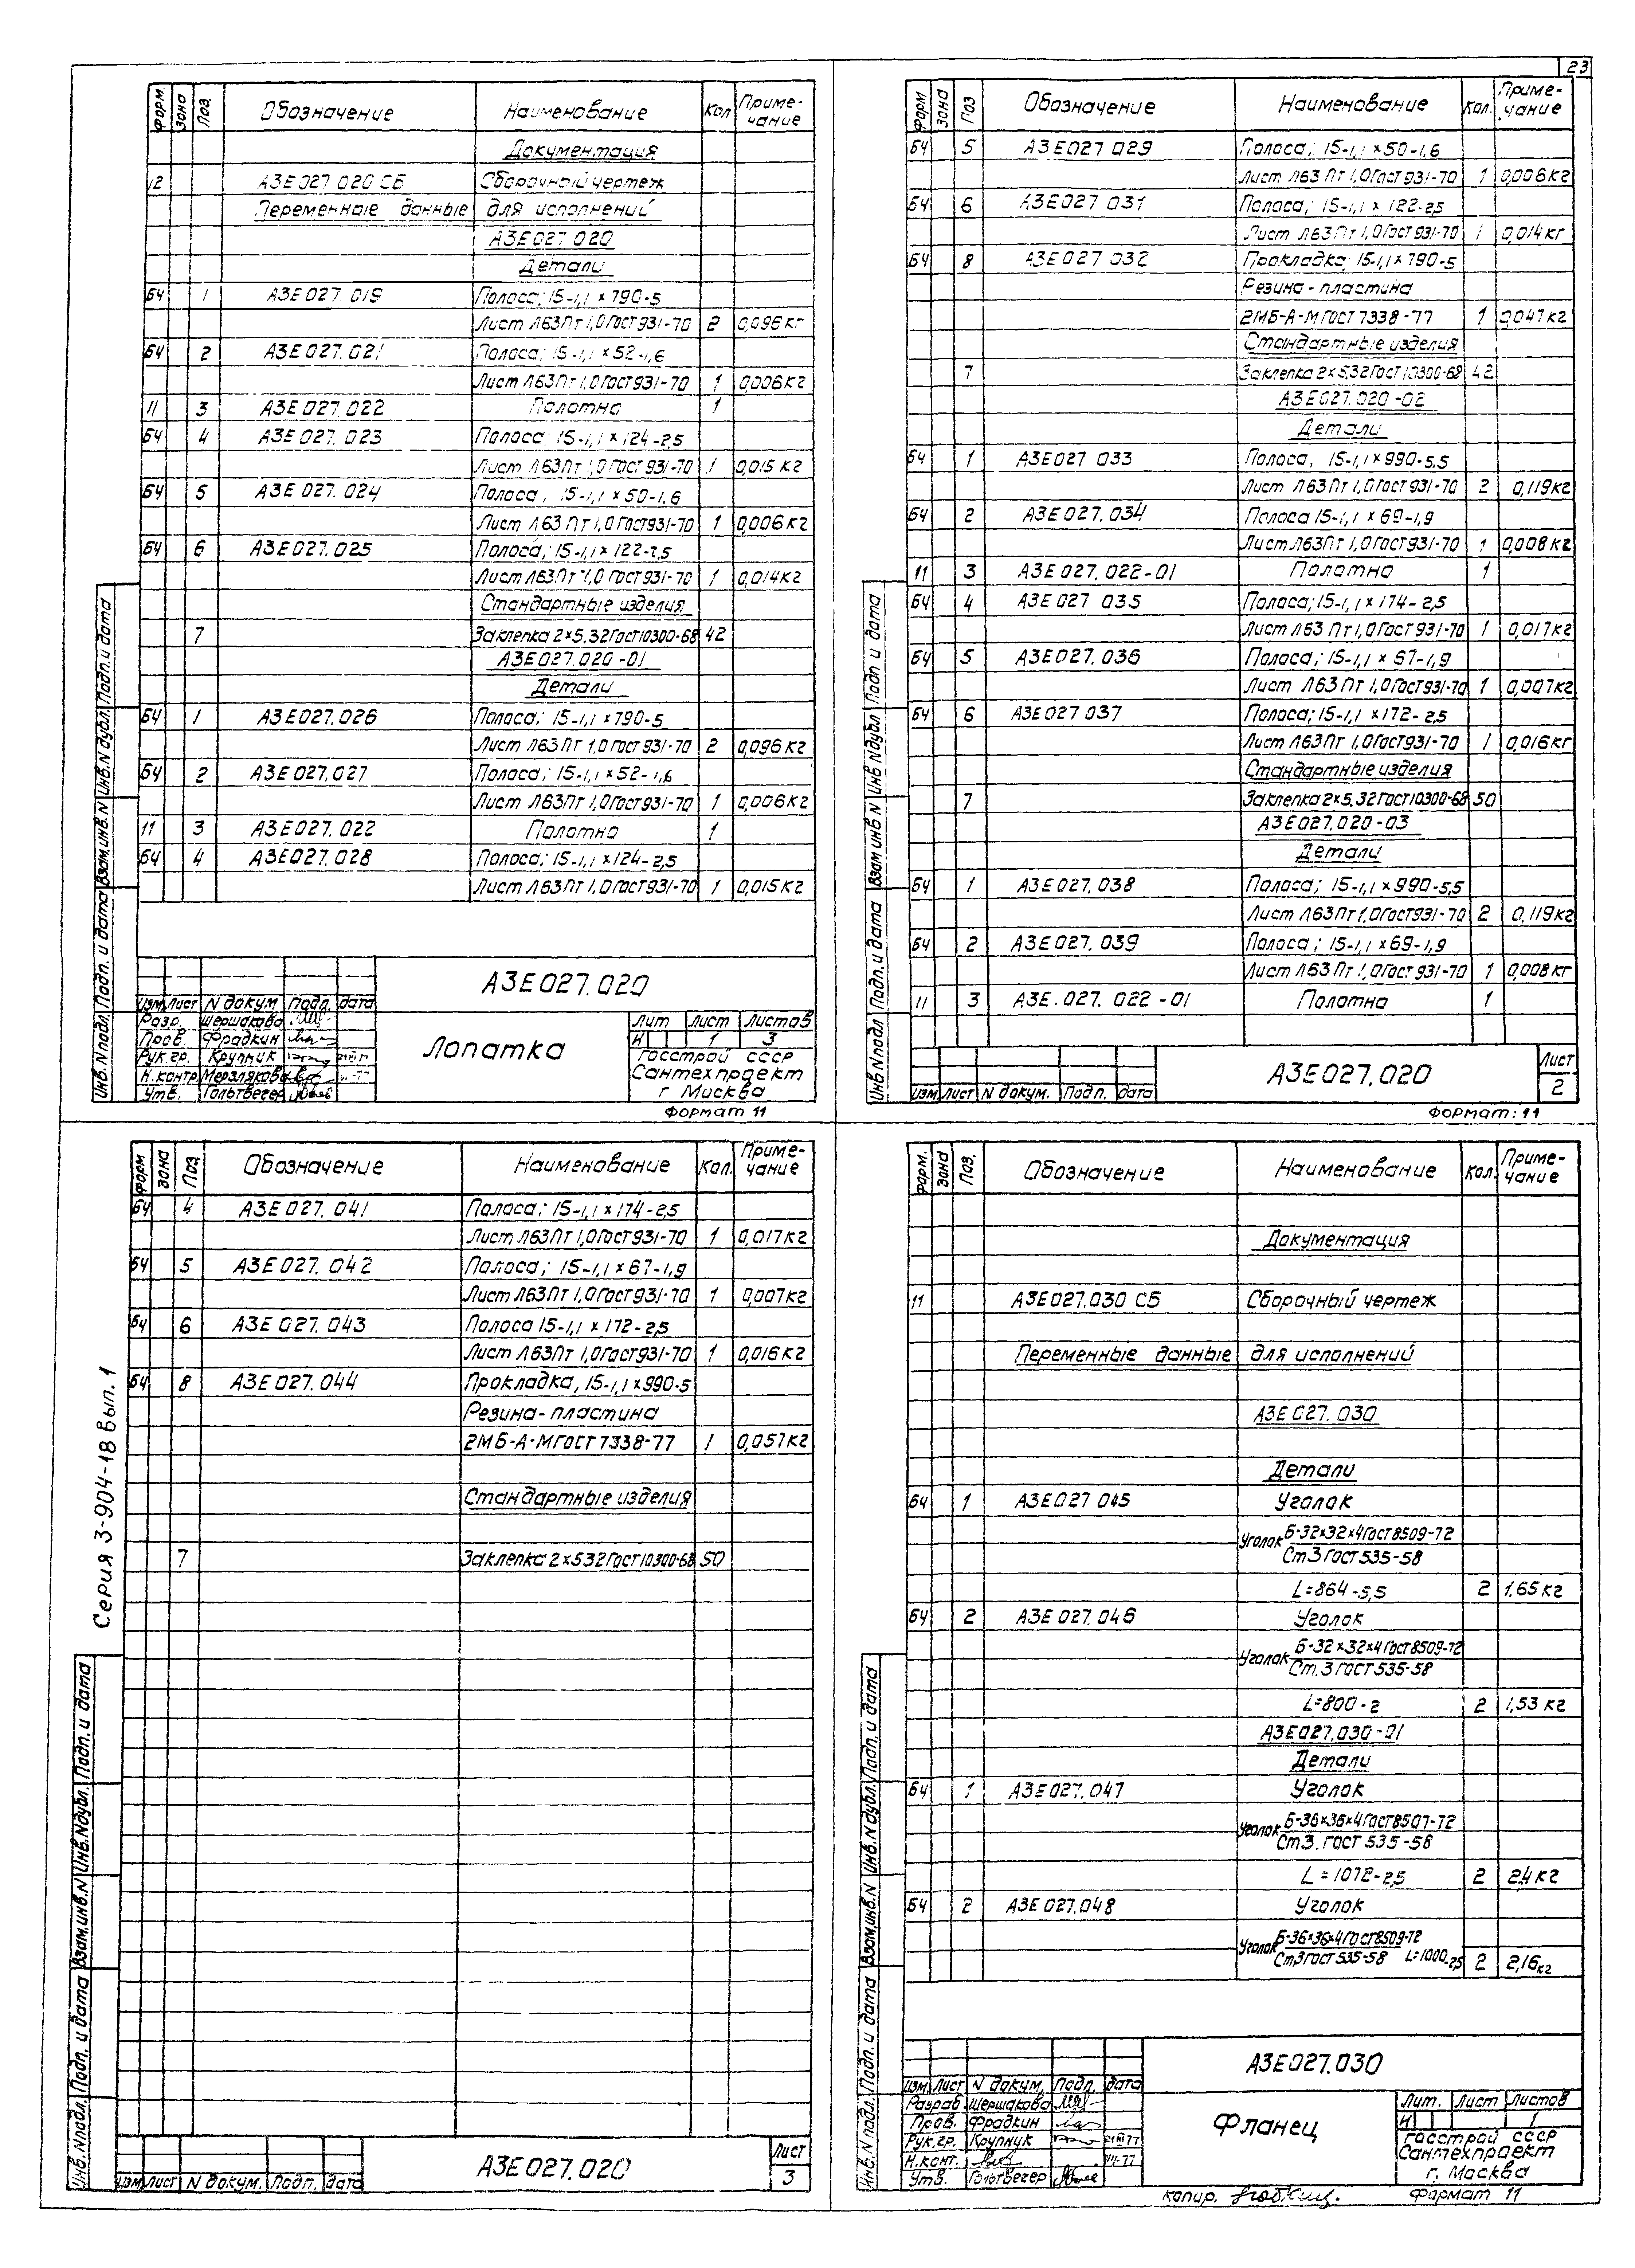 23
Форм. Зона Поз. Обозначение Наименование Кол Приме-чание
Документация
12 А3Е027.020 СБ Сборочный чертеж
Переменные данные для исполнений
А3Е027.020
Детали
БЧ 1 А3Е027.019 Полоса; 15-1,1 × 790-5
Лист Л63Пт 1,0 ГОСТ 931-70 2 0,096 кг
БЧ 2 А3Е027.021 Полоса; 15-1,1 × 52-1,6
Лист Л63Пт 1,0 ГОСТ 931-70 1 0,006 кг
11 3 А3Е027.022 Полотно 1
БЧ 4 А3Е027.023 Полоса; 15-1,1 × 124-2,5
Лист Л63Пт 1,0 ГОСТ 931-70 1 0,015 кг
БЧ 5 А3Е027.024 Полоса, 15-1,1 × 50-1,6
Лист Л63Пт 1,0 ГОСТ 931-70 1 0,006 кг
БЧ 6 А3Е027.025 Полоса; 15-1,1 × 122-2,5
Лист Л63Пт 1,0 ГОСТ 931-70 1 0,014 кг
Стандартные изделия
7 Заклепка 2×5.32 ГОСТ 10300-68 42
А3Е027.020-01
Детали
БЧ 1 А3Е027.026 Полоса; 15-1,1 × 790-5
Лист Л63Пт 1,0 ГОСТ 931-70 2 0,096 кг
БЧ 2 А3Е027.027 Полоса; 15-1,1 × 52-1,6
Лист Л63Пт 1,0 ГОСТ 931-70 1 0,006 кг
11 3 А3Е027.022 Полотно 1
БЧ 4 А3Е027.028 Полоса; 15-1,1 × 124-2,5
Лист Л63Пт 1,0 ГОСТ 931-70 1 0,015 кг
Инв. N подл. Подп. и дата Взам. инв. N Инв. N дубл. Подп. и дата
А3Е027.020
Изм. Лист N докум Подп. дата
Разр. Шершакова
Пров. Фрадкин
Рук. гр. Крупник
Н. контр. Мерзлякова
Утв. Гольтвегер
Лопатка
Лит Лист Листов
И 1 3
Госстрой СССР
Сантехпроект
г Москва
Формат 11
Форм Зона Поз Обозначение Наименование Кол. Приме-чание
БЧ 5 А3Е027 029 Полоса; 15-1,1 × 50-1,6
Лист Л63 Пт 1,0 ГОСТ 931-70 1 0,006 кг
БЧ 6 А3Е027 031 Полоса; 15-1,1 × 122-2,5
Лист Л63 Пт 1,0 ГОСТ 931-70 1 0,014 кг
БЧ 8 А3Е027 032 Прокладка; 15-1,1 × 790-5
Резина-пластина
2МБ-А-М ГОСТ 7338-77 1 0,047 кг
Стандартные изделия
7 Заклепка 2×5.32 ГОСТ 10300-68 42
А3Е027.020-02
Детали
БЧ 1 А3Е027 033 Полоса, 15-1,1 × 990-5,5
Лист Л63Пт 1,0 ГОСТ 931-70 2 0,119 кг
БЧ 2 А3Е027.034 Полоса 15-1,1 × 69-1,9
Лист Л63Пт 1,0 ГОСТ 931-70 1 0,008 кг
11 3 А3Е027.022-01 Полотно 1
БЧ 4 А3Е027 035 Полоса; 15-1,1 × 174-2,5
Лист Л63 Пт 1,0 ГОСТ 931-70 1 0,017 кг
БЧ 5 А3Е027.036 Полоса; 15-1,1 × 67-1,9
Лист Л63Пт 1,0 ГОСТ 931-70 1 0,007 кг
БЧ 6 А3Е027 037 Полоса; 15-1,1 × 172-2,5
Лист Л63Пт 1,0 ГОСТ 931-70 1 0,016 кг
Стандартные изделия
7 Заклепка 2×5.32 ГОСТ 10300-68 50
А3Е027.020-03
Детали
БЧ 1 А3Е027.038 Полоса; 15-1,1 × 990-5,5
Лист Л63Пт 1,0 ГОСТ 931-70 2 0,119 кг
БЧ 2 А3Е027.039 Полоса; 15-1,1 × 69-1,9
Лист Л63Пт 1,0 ГОСТ 931-70 1 0,008 кг
11 3 А3Е.027.022-01 Полотно 1
Инв N подл Подп. и дата Взам инв N Инв N дубл Подп и дата
Изм Лист N докум. Подп. дата
А3Е027.020
Лист
2
Формат: 11
Форм Зона Поз. Обозначение Наименование Кол. Приме-чание
БЧ 4 А3Е027.041 Полоса; 15-1,1 × 174-2,5
Лист Л63Пт 1,0 ГОСТ 931-70 1 0,017 кг
БЧ 5 А3Е027.042 Полоса; 15-1,1 × 67-1,9
Лист Л63Пт 1,0 ГОСТ 931-70 1 0,007 кг
БЧ 6 А3Е027.043 Полоса 15-1,1 × 172-2,5
Лист Л63Пт 1,0 ГОСТ 931-70 1 0,016 кг
БЧ 8 А3Е027.044 Прокладка, 15-1,1 × 990-5
Резина-пластина
2МБ-А-М ГОСТ 7338-77 1 0,057 кг
Стандартные изделия
7 Заклепка 2×5 32 ГОСТ 10300-68 50
Серия 3-904-18 Вып. 1
Инв. N подл. Подп. и дата Взам. инв. N Инв. N дубл. Подп. и дата
Изм Лист N докум. Подп. дата
А3Е027.020
Лист
3
Форм. Зона Поз. Обозначение Наименование Кол. Приме-чание
Документация
11 А3Е027.030 СБ Сборочный чертеж
Переменные данные для исполнений
А3Е027.030
Детали
БЧ 1 А3Е027 045 Уголок
Уголок Б-32×32×4 ГОСТ 8509-72
Ст 3 ГОСТ 535-58
L=864-5,5 2 1.65 кг
БЧ 2 А3Е027.046 Уголок
Уголок Б-32×32×4 ГОСТ 8509-72
Ст. 3 ГОСТ 535-58
L=800-2 2 1,53 кг
А3Е027.030-01
Детали
БЧ 1 А3Е027.047 Уголок
Уголок Б-36×36×4 ГОСТ 8507-72
Ст3. ГОСТ 535-58
L=1072-2,5 2 2,4 кг
БЧ 2 А3Е027.048 Уголок
Уголок Б-36×36×4 ГОСТ 8509-72
Ст3 ГОСТ 535-58 L=1000-2,5 2 2,16 кг
Инв. N подл. Подп. и дата Взам. инв. N Инв. N дубл. Подп. и дата
А3Е027.030
Изм. Лист N докум. Подп. дата
Разраб Шершакова
Пров. Фрадкин
Рук. гр. Крупник
Н. конт.
Утв. Гольтвегер
Фланец
Лит. Лист Листов
И 1
Госстрой СССР
Сантехпроект
г. Москва
Копир.
Формат 11